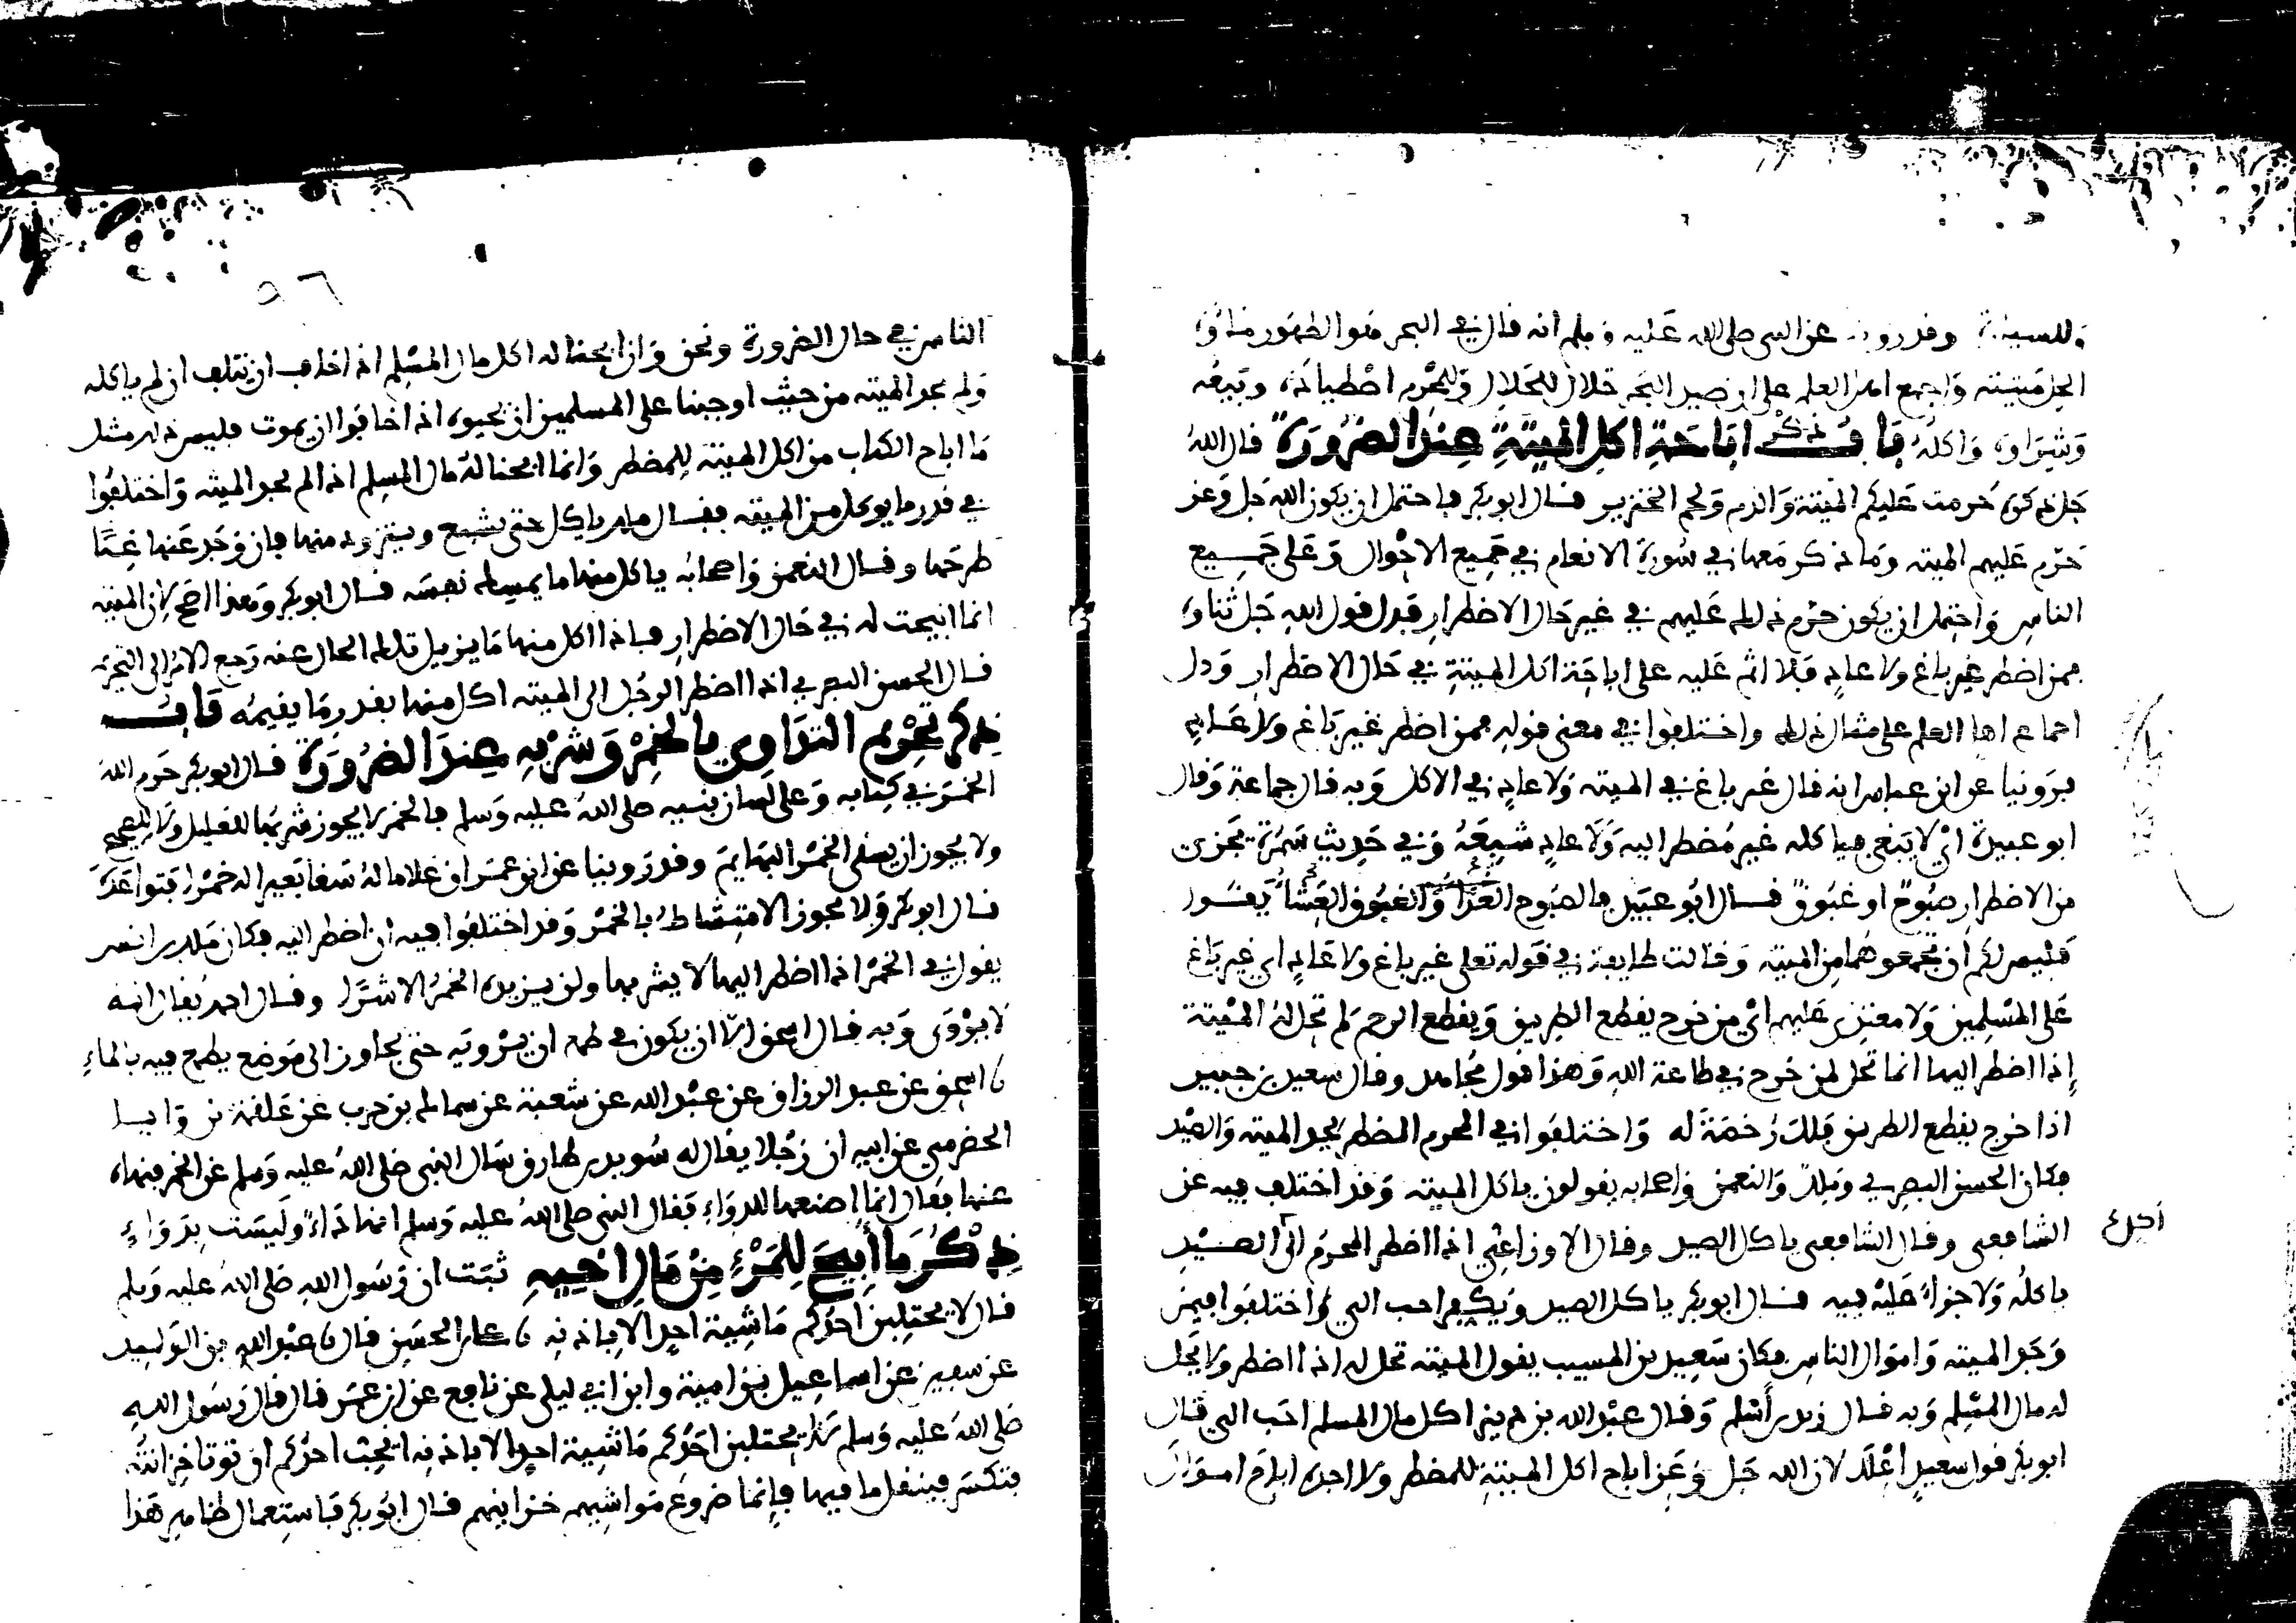 وللسيارة وقد روينا عن النبي صلى الله عليه وسلم انه قال في البحر هو الطهور ماؤه
الحل ميتته واجمع اهل العلم على ان صيد البحر حلال للحلال وللمحرم اصطياده وبيعه
وشراؤه واكله باب ذكر اباحة اكل الميتة عند الضرورة قال الله
جل ذكره حرمت عليكم الميتة والدم ولحم الخنزير قال ابو بكر فاحتمل ان يكون الله جل وعز
حرم عليهم الميته وما ذكر معها في سورة الانعام في جميع الاحوال وعلى جميع
الناس واحتمل ان يكون حرم ذلك عليهم في غير حال الاضطرار فدل قول الله جل ثناؤه
فمن اضطر غير باغ ولا عاد فلا اثم عليه على اباحة اكل الميتة في حال الاضطرار ودل
اجماع اهل العلم على مثل ذلك واختلفوا في معنى قوله فمن اضطر غير باغ ولا عاد
فروينا عن ابن عباس انه قال غير باغ في الميته ولا عاد في الاكل وبه قال جماعة وقال
ابو عبيدة اي لا يبغي فيا كله غير مضطر اليه ولا عاد شبعه وفي حديث سمرة يجزي
من الاضطرار صبوح او غبوق قال ابو عبيد فالصبوح الغداء والغبوق العشاء يقول
فليس لكم ان تجمعوهما من الميتة وقالت طايفة في قوله تعلى غير باغ ولا عاد اي غير باغ
على المسلمين ولا معتد عليهم اي من خرج يقطع الطريق ويقطع الرحم لم تحل له الميتة
إذا اضطر اليها انما تحل لمن خرج في طاعة الله وهذا قول مجاهد وقال سعيد بن جبير
اذا خرج يقطع الطريق فلا رخصة له واختلفوا في المحرم المضطر يجد الميته والصيد
فكان الحسن البصري وملك والنعمن واصحابه يقولون ياكل الميته وقد اختلف فيه عن
الشافعي وقال الشافعي ياكل الصيد وقال الاوزاعي اذا اضطر المحرم الى الصيد
اكل
ياكله ولا جزاء عليه فيه قال ابو بكر ياكل الصيد ويكفر احب الي واختلفوا فيمن
وجد الميته واموال الناس فكان سعيد بن المسيب يقول الميته تحل له اذا اضطر ولا يحل
له مال المسلم وبه قال زيد بن أسلم وقال عبد الله بن دينر اكل مال المسلم احب الي قال
ابو بكر قول سعيد اعلا لان الله جل وعز اباح اكل الميتة للمضطر ولا اجده اباح اموال
الناس في حال الضرورة ونحن وان ابحنا له اكل مال المسلم اذا خاف ان يتلف ان لم ياكله
ولم يجد الميته من حيث اوجبنا على المسلمين ان يحيوه اذا خافوا ان يموت فليس ذلك مثل
ما اباح الكتاب من اكل الميته للمضطر وانما ابحنا له مال المسلم اذا لم يجد الميته واختلفوا
في قدر ما يوكل من الميته فقال ملك ياكل حتى يشبع ويتزود منها فان وجد عنها غنا
طرحها وقال النعمن واصحابه ياكل منها ما يمسك نفسه قال ابو بكر وهذا اصح لان الميته
انما ابيحت له في حال الاضطرار فاذا اكل منها ما يزيل تلك الحال عنه رجع الامر الى التحريم
قال الحسن البصري اذا اضطر الرجل الى الميته اكل منها بقدر ما يقيمه باب
ذكر تحريم التداوي بالخمر وشربه عند الضرورة قال ابو بكر حرم الله
الخمر في كتابه وعلى لسان نبيه صلى الله عليه وسلم فالخمر لا يجوز شربها للعليل ولا للصحيح
ولا يجوز ان يسقى الخمر البهايم وقد روينا عن ابن عمر ان غلاما له سقا بعيرا له خمرا فتواعده
قال ابو بكر ولا يجوز الامتشاط بالخمر وقد اختلفوا فيه ان اضطر اليه فكان ملك بن انس
يقول في الخمر اذا اضطر اليها لا يشربها ولن يزيده الخمر الا شرا وقال احمد يقال انه
لا يروى وبه قال اسحق الا ان يكون في طمع ان يرويه حتى يجاوز الى موضع يطمع فيه بالماء
نا اسحق عن عبد الرزاق عن عبد الله عن شعبة عن سماك بن حرب عن علقمة بن وايل
الحضرمي عن ابيه ان رجلا يقال له سويد بن طارق سال النبي صلى الله عليه وسلم عن الخمر فنهاه
عنها فقال انما اصنعها للدواء فقال النبي صلى الله عليه وسلم انها داء وليست بدواء
ذكر ما أبيح للمرء من مال اخيه ثبت ان رسول الله صلى الله عليه وسلم
قال لا يحتلبن احدكم ماشية احد الا باذنه نا علي بن الحسين قال نا عبد الله بن الوليد
عن سفين عن اسماعيل بن امية وابن ابي ليلى عن نافع عن ابن عمر قال قال رسول الله
صلى الله عليه وسلم لا يحتلبن احدكم ماشية احد الا باذنه ايحب احدكم ان توتا خزانته
فتكسر فينتقل ما فيها فإنما ضروع مواشيهم خزاينهم قال ابو بكر فاستعمال ظاهر هذا